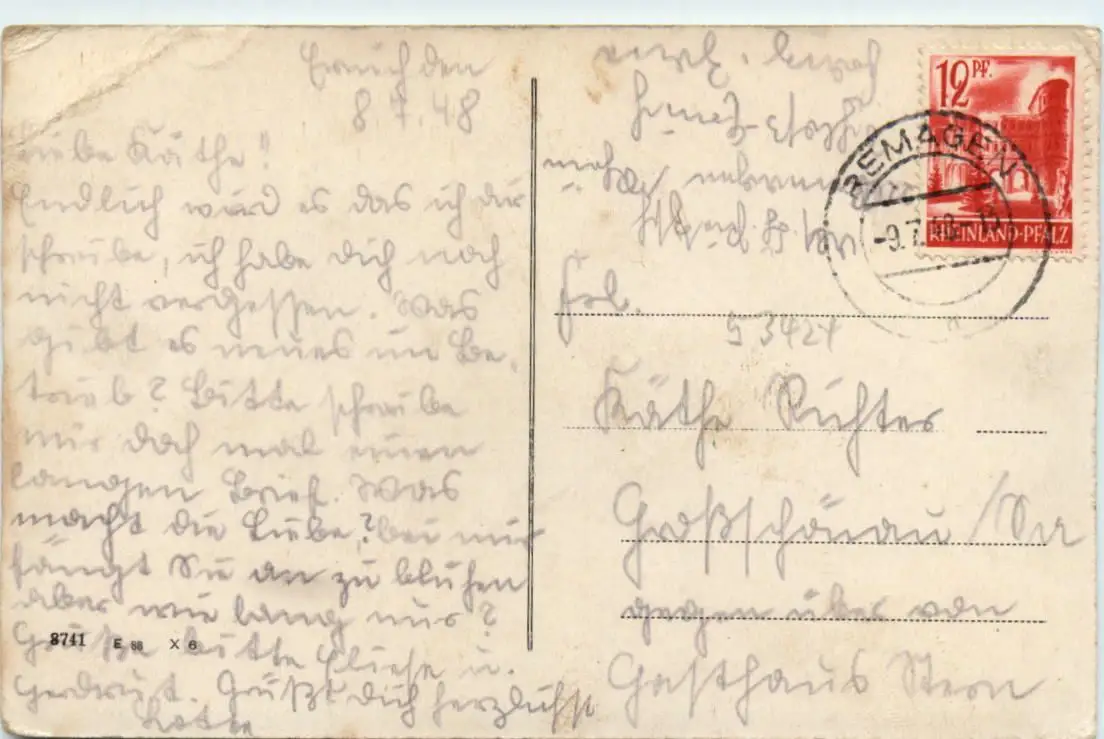 den
8.7.48
Liebe Käthe!
Endlich wird es das ich dir
schreibe, ich habe dich noch
nicht vergessen. Was
gibt es neues im Be-
trieb? Bitte schreibe
mir doch mal einen
langen Brief. Was
macht die Liebe,? bei mir
fängt Sie an zu blühen
aber wie lang nur?
Grüße bitte Eliese u.
Gerdrut. Grüßt dich herzlichst
Lotte
8741 E 88 X 6
12 PF.
RHEINLAND-PFALZ
REMAGEN
-9.7.48
Frl.
53424
Käthe Richter
Großschönau /Sa
gegen über von
Gasthaus Stern